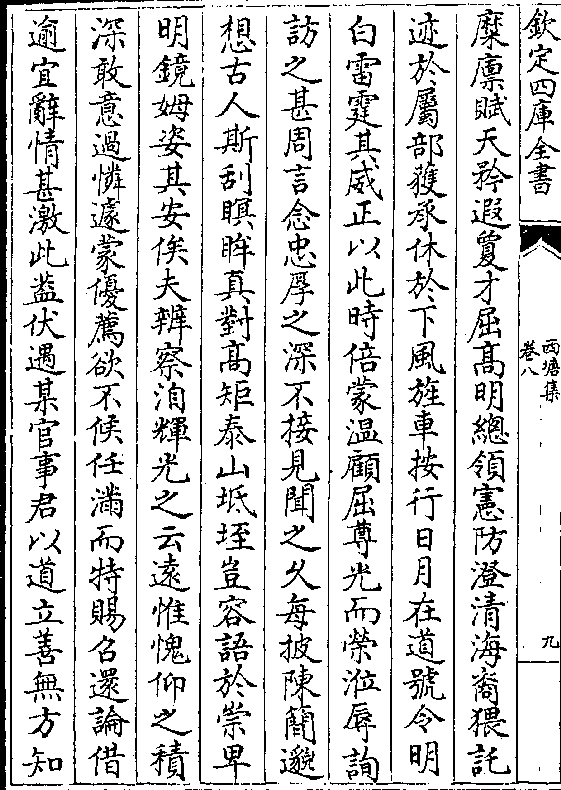 欽定四庫全書
西塘集
卷八
九
糜廪賦天矜遐敻才屈髙明總領憲防澄清海裔猥託
迹於屬部獲承休於下風旌車按行日月在道號令明
白雷霆其威正以此時倍蒙温顧屈尊光而榮涖辱詢
訪之甚周言念忠厚之深不接見聞之乆每披陳簡邈
想古人斯刮瞑眸真對髙矩泰山坻垤豈容語於崇卑
明鏡姆姿其安俟夫辨察洎輝光之云逺惟愧仰之積
深敢意過憐遽蒙優薦欲不俟任滿而特賜召還論借
逾宜辭情甚激此葢伏遇某官事君以道立善無方知